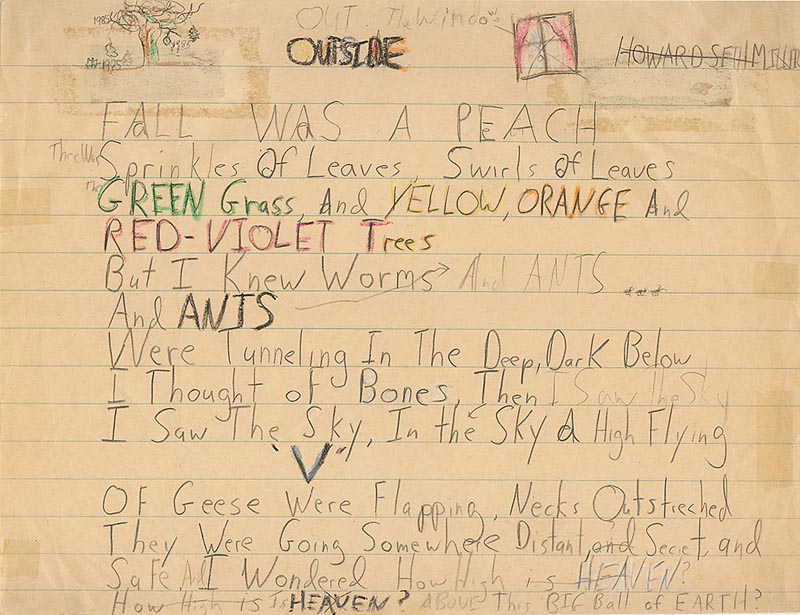 OUT The Window
OUTSIDE
HOWARD SETH MILLER
1985
1985
1985
FALL WAS A PEACH
There Was
Sprinkles Of Leaves, Swirls of Leaves
The
GREEN Grass, And YELLOW, ORANGE And
RED-VIOLET Trees
But I Knew Worms And ANTS ...
And ANTS
Were Tunneling In The Deep, Dark Below
I Thought of Bones, Then I Saw The Sky
I Saw The Sky, In the SKY A High Flying
"V"
Of Geese Were Flapping, Necks Outstreched
They Were Going Somewhere Distant, and Secret, and
Safe, And I Wondered How High is HEAVEN?
How High is Is HEAVEN? ABOVE This BIG Ball of EARTH?